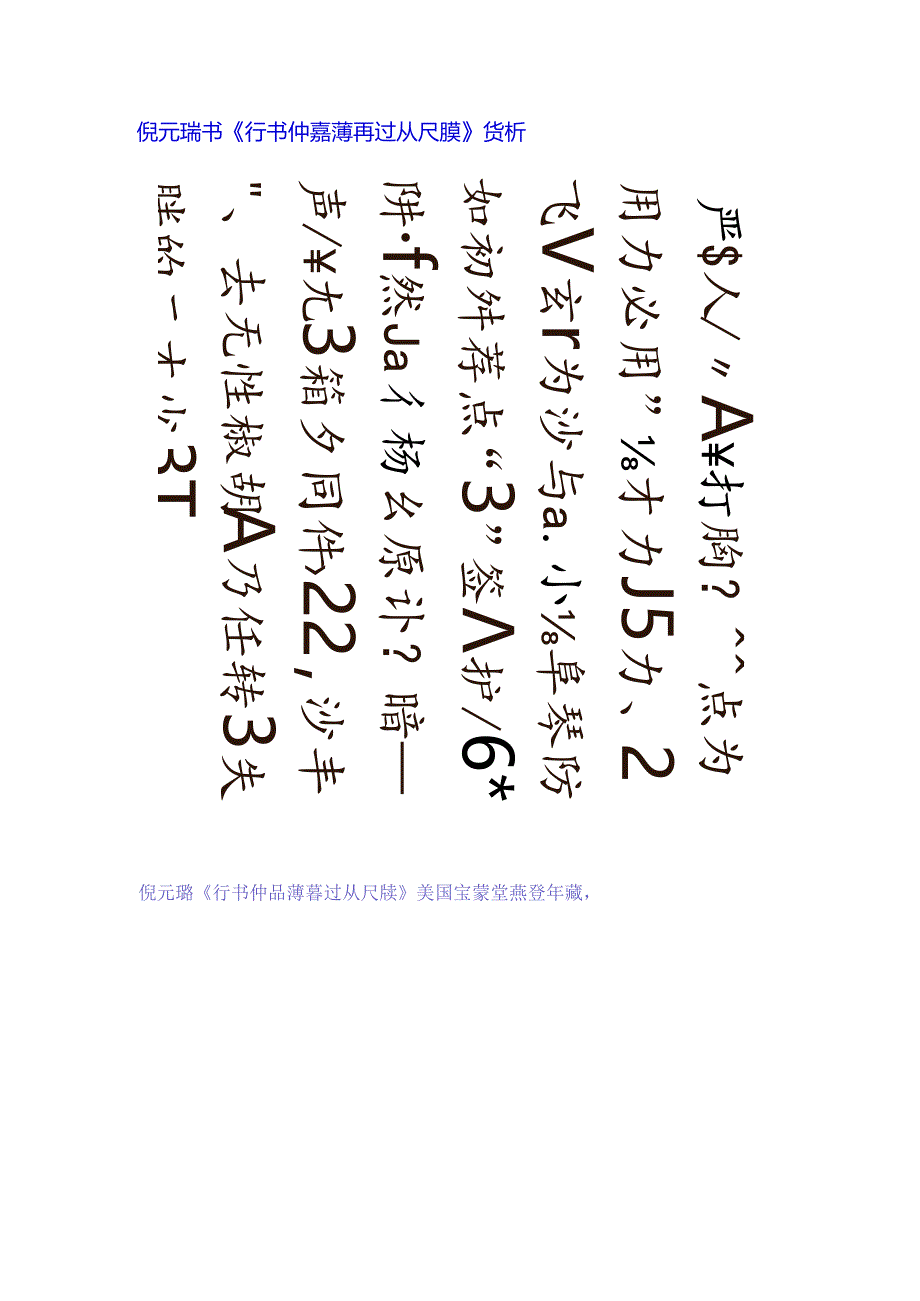 倪元瑞书《行书仲嘉薄再过从尺膜》货析
严$人/〃A¥打胸?^^点为
用力必用”⅛才力J5力、2
飞V玄r为沙与a.小⅛阜琴防
如初舛荐点“3”签Λ护/6*
阱•f然Ja彳杨幺原讣?暗—
声/¥尢3箱夕同件22,沙丰
"、去无性椒胡A乃任转3失
的一十小3T
倪元璐《行书仲品薄暮过从尺牍》美国宝蒙堂燕登年藏，